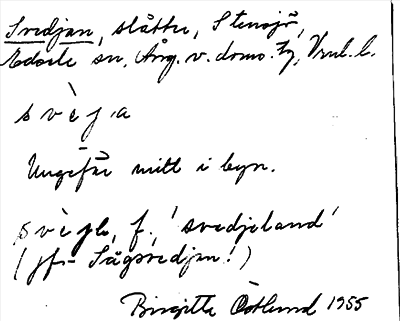 Svedjan, slåtter, Stensjö,
Edsele sn, Ång. v. doms. fg, Vnl. l.
s v è j a
Ungefär mitt i byn.
svèjl, f., 'svedjeland'
(jfr Sågsvedjan!)
Birgitta Östlund 1955